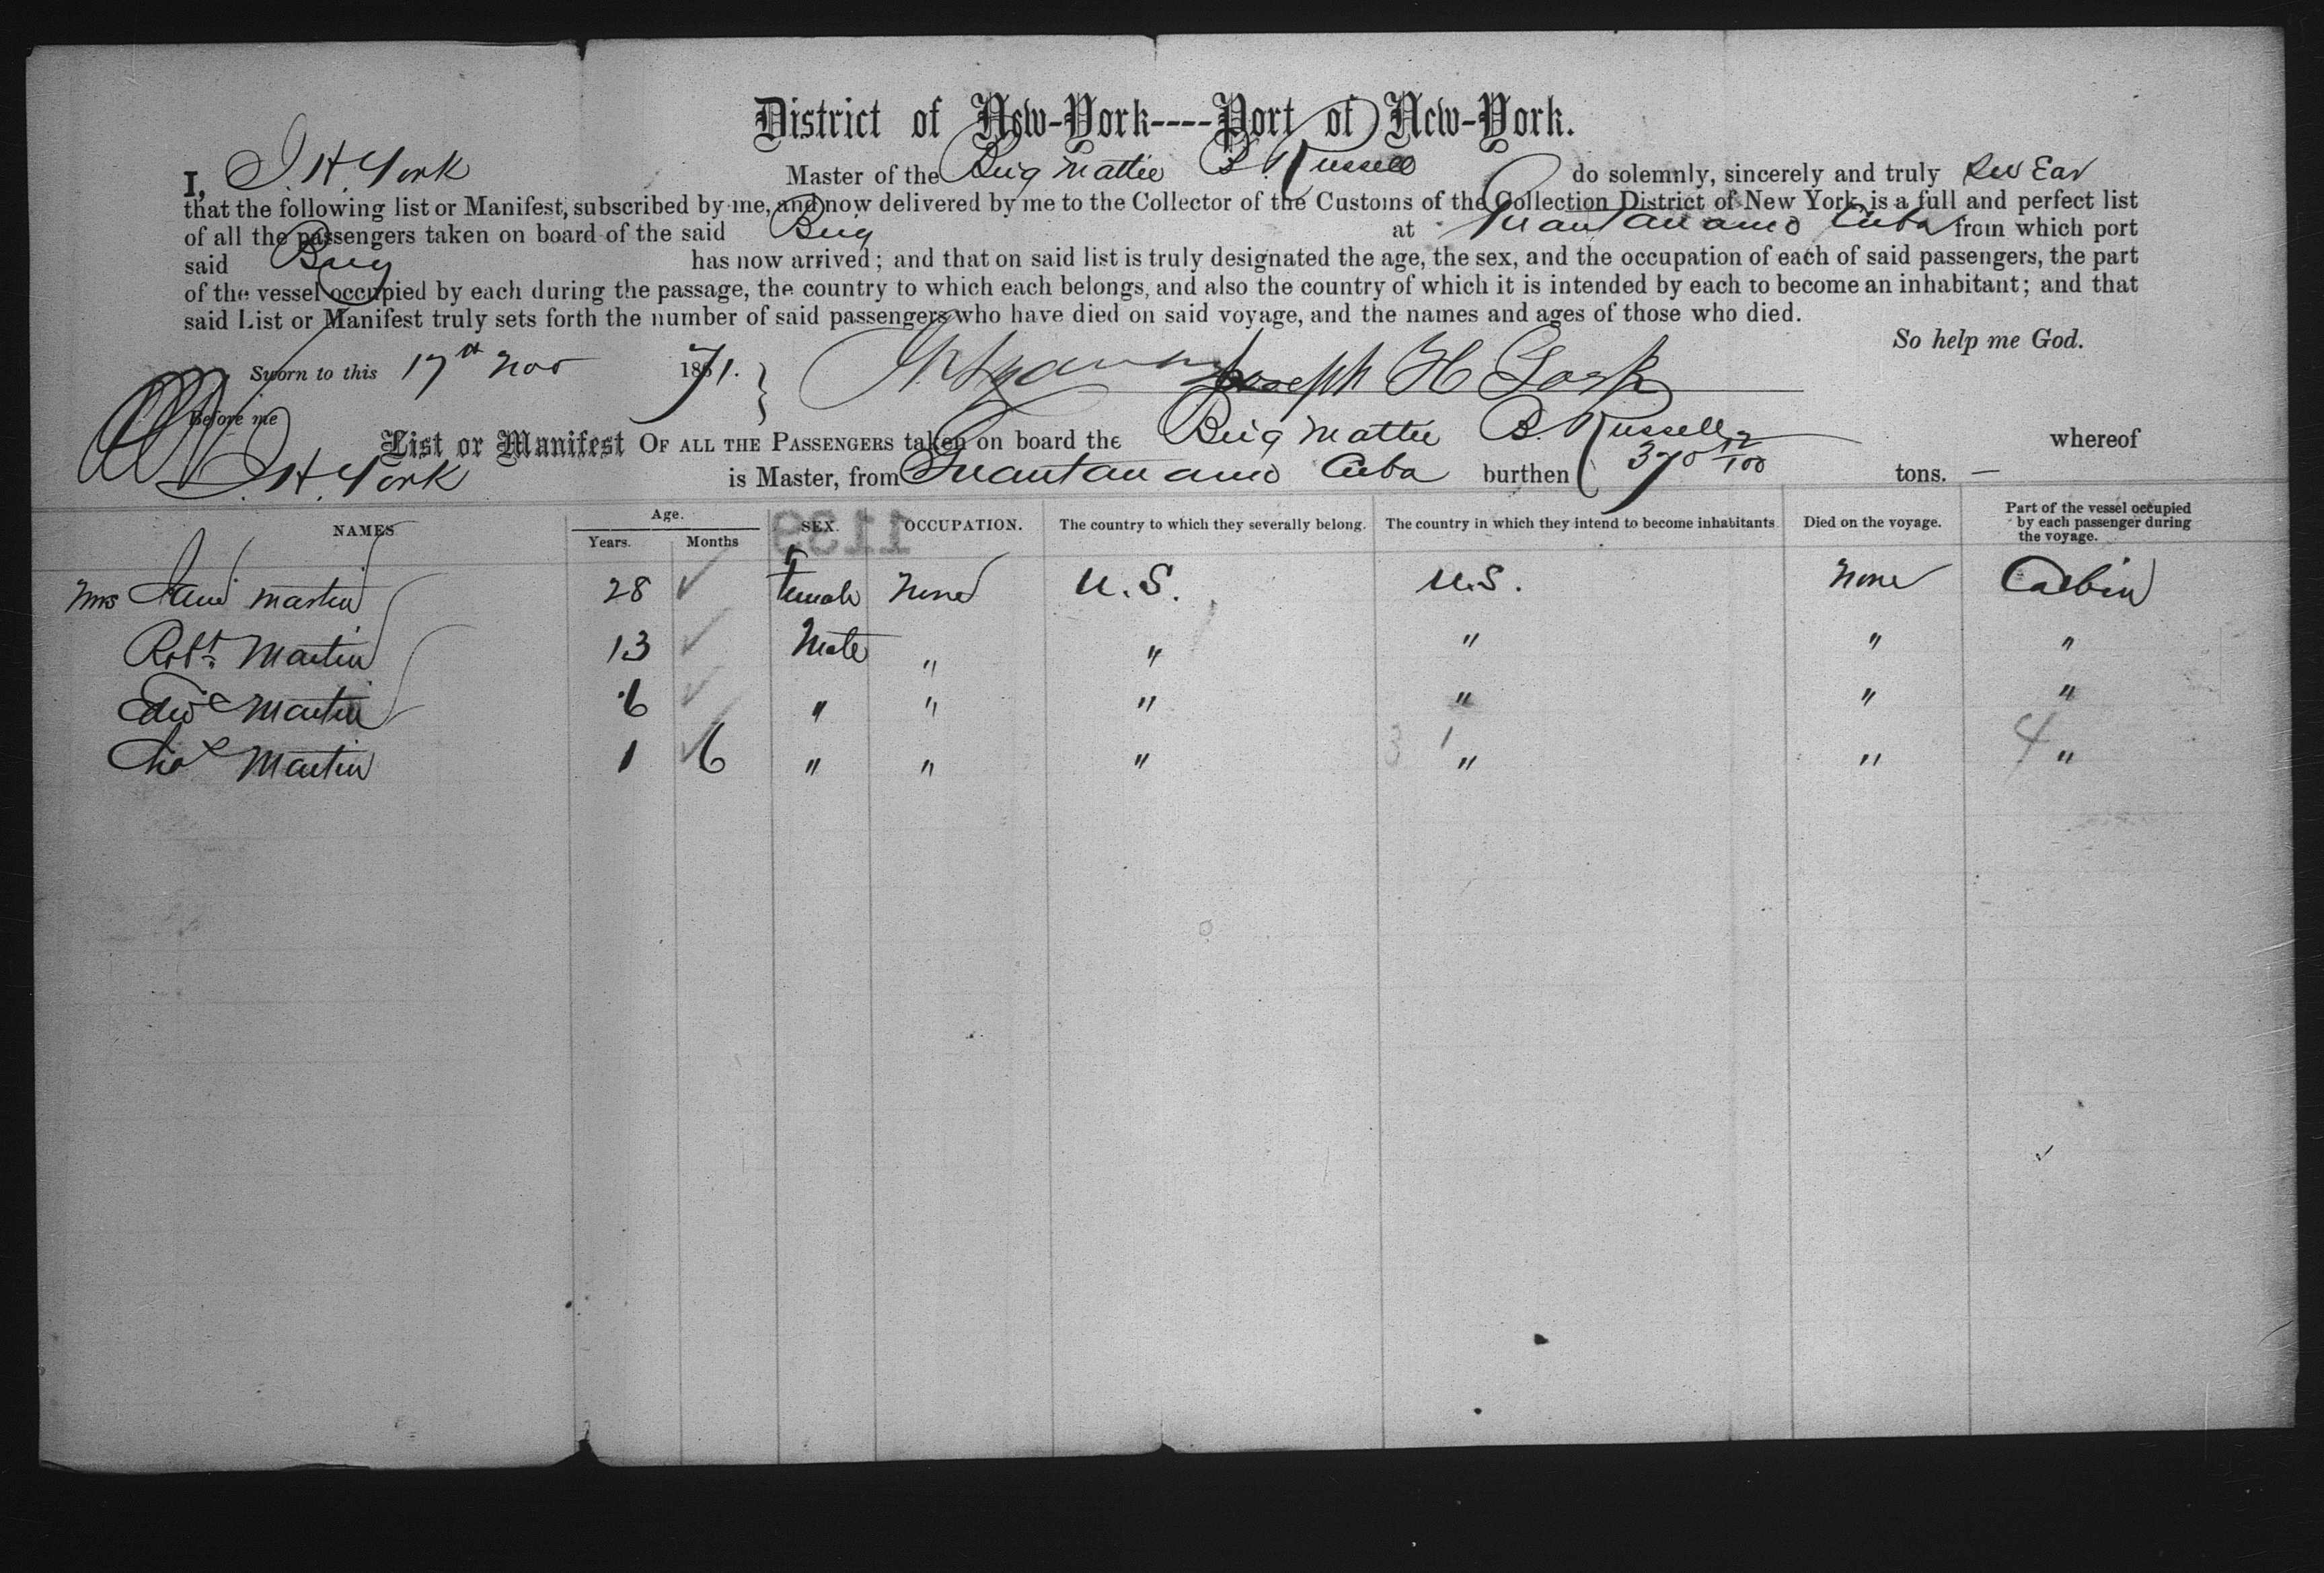 District of New-York----Port of New-York.
I, J. H. York Master of the Brig Mattie B. Russell do solemnly, sincerely and truly swear
that the following list or Manifest, subscribed by me, and now delivered by me to the Collector of the Customs of the Collection District of New York, is a full and perfect list
of all the passengers taken on board of the said Brig at Guantanamo Cuba from which port
said Brig has now arrived; and that on said list is truly designated the age, the sex, and the occupation of each of said passengers, the part
of the vessel occupied by each during the passage, the country to which each belongs, and also the country of which it is intended by each to become an inhabitant; and that
said List or Manifest truly sets forth the number of said passengers who have died on said voyage, and the names and ages of those who died.
So help me God.
Sworn to this 17th Nov 1871. Joseph H York
Before me
List or Manifest OF ALL THE PASSENGERS taken on board the Brig Mattie B. Russell whereof
J. H. York is Master, from Guantanamo Cuba burthen 370 12/100 tons. —
NAMES Age. Years. Months SEX. OCCUPATION. The country to which they severally belong. The country in which they intend to become inhabitants Died on the voyage. Part of the vessel occupied by each passenger during the voyage.
1139
Mrs Martin 28 Female None U.S. U.S. None Cabin
Robt. Martin 13 Male " " " " "
Edwd Martin 6 " " " " " "
Martin 1 6 " " " 3 1 " " 4 "